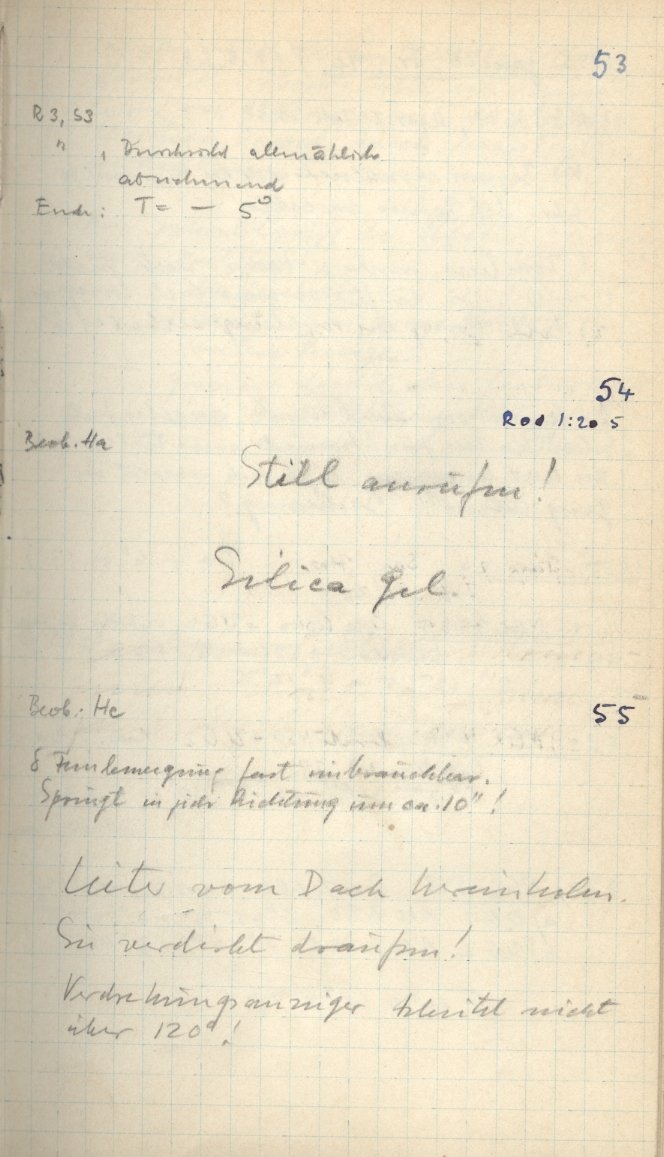 53
R 3, S3
" , Durchsicht allmählich
abnehmend
Ende: T = – 5°
54
Rod 1:20 5
Beob. Ha
Still anrufen!
Silica gel.
Beob. He
55
δ Feinbewegung fast unbrauchbar.
Springt in jeder Richtung um ca. 10"!
Leiter vom Dach hereinholen.
Sie verdirbt draußen!
Verdrehungsanzeiger nicht
über 120°!